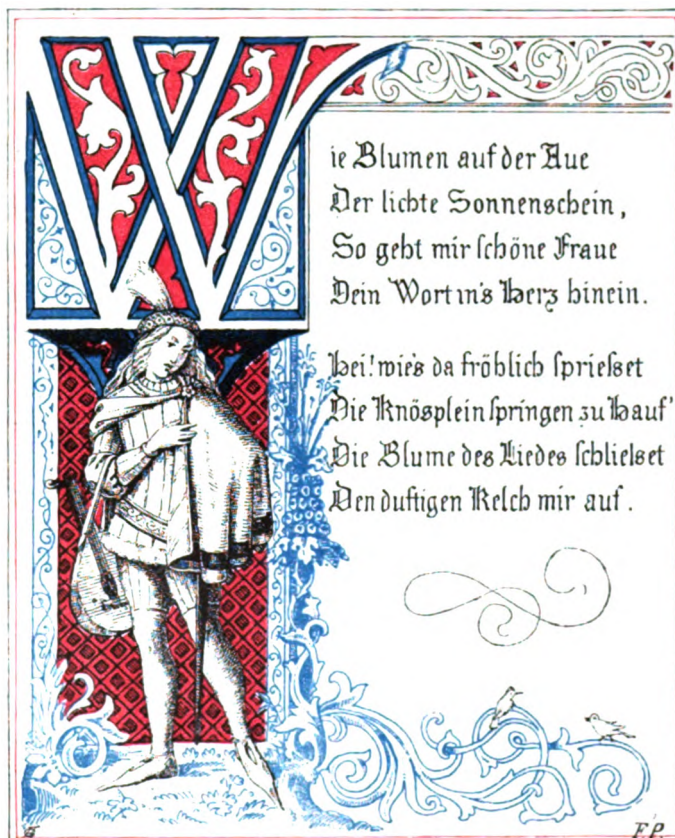 Wie Blumen auf der Aue
Der lichte Sonnenschein,
So geht mir schöne Fraue
Dein Wort in's Herz hinein.
Hei! wie's da fröhlich spriesset
Die Knösplein springen zu Hauf'
Die Blume des Liedes schliesset
Den duftigen Kelch mir auf.
F.P.